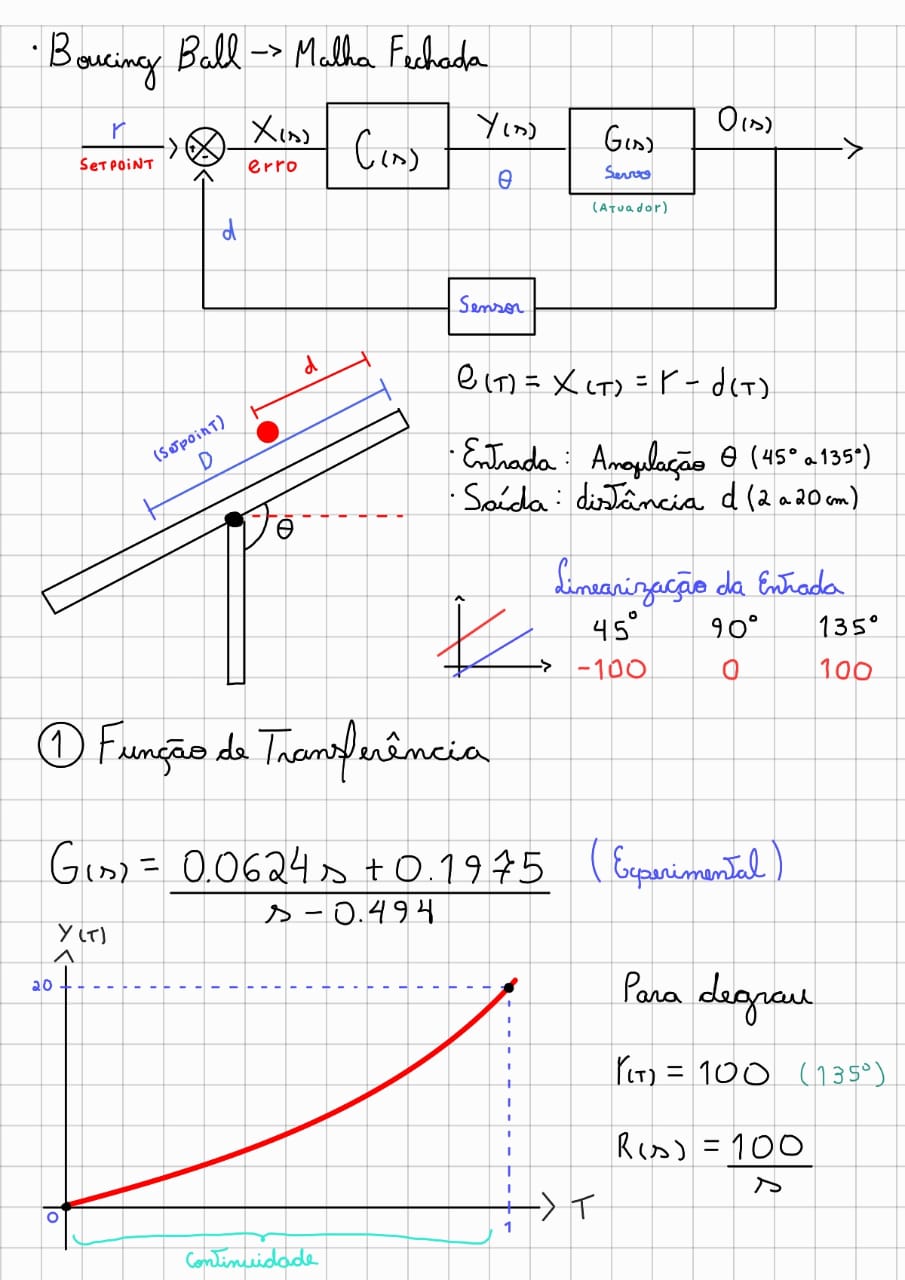 · Boucing Ball -> Malha Fechada
r
SETPOINT
+
-
X(s)
erro
C(s)
Y(s)
θ
G(s)
Servo
(Atuador)
O(s)
d
Sensor
d
(Setpoint)
D
θ
e(T) = X(T) = r - d(T)
· Entrada: Angulação θ (45° a 135°)
· Saída: distância d (2 a 20 cm)
Linearização da Entrada
45° 90° 135°
-100 0 100
① Função de Transferência
G(s) = 0.0624s + 0.1975 (Experimental)
s - 0.494
Y(T)
20
0
1
T
Continuidade
Para degrau
r(T) = 100 (135°)
R(s) = 100
s